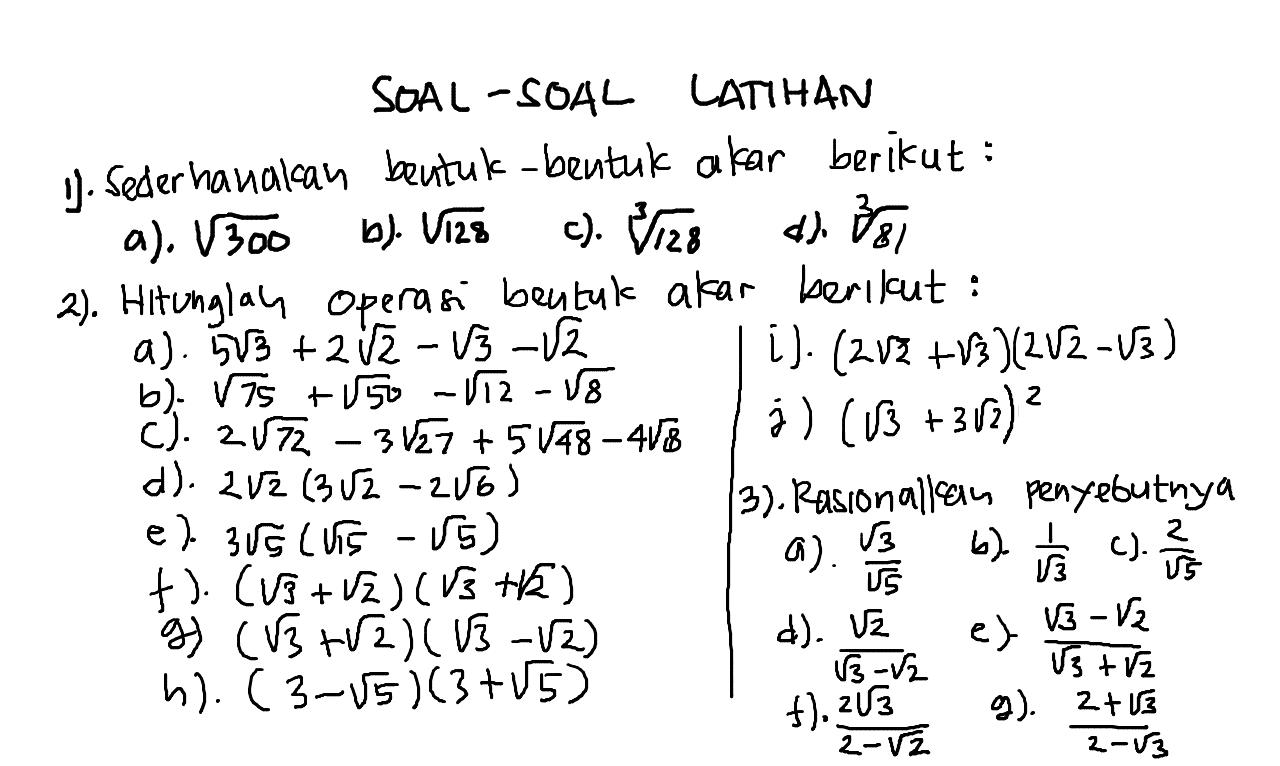 SOAL-SOAL LATIHAN
1). Sederhanakan bentuk-bentuk akar berikut :
a). √300 b). √128 c). ³√128 d). ³√81
2). Hitunglah operasi bentuk akar berikut :
a). 5√3 + 2√2 - √3 - √2
b). √75 + √50 - √12 - √8
c). 2√72 - 3√27 + 5√48 - 4√8
d). 2√2 (3√2 - 2√6)
e). 3√5 (√15 - √5)
f). (√3 + √2)(√3 + √2)
g) (√3 + √2)(√3 - √2)
h). (3 - √5)(3 + √5)
i). (2√2 + √3)(2√2 - √3)
j) (√3 + 3√2)²
3). Rasionalkan penyebutnya
a). √3/√5 b). 1/√3 c). 2/√5
d). √2/(√3 - √2) e). (√3 - √2)/(√3 + √2)
f). 2√3/(2 - √2) g). (2 + √3)/(2 - √3)